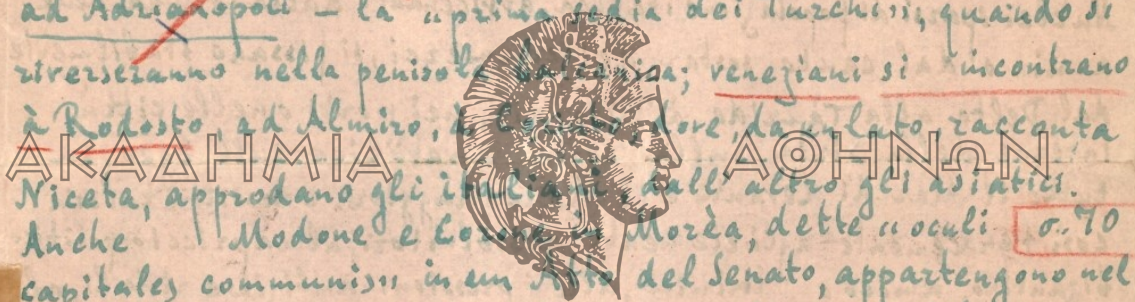 ad Adrianopoli — la "prima sedia dei Turchi", quando si
riverseranno nella penisola balcanica; veneziani si incontrano
à Rodosto, ad Almiro, à Corinto, dove, da un lato, racconta
ΑΚΑΔΗΜΙΑ ΑΘΗΝΩΝ
Niceta, approdano gli italiani, dall' altro gli asiatici.
Anche Modone e Corone in Morèa, dette "oculi σ. 70
capitales communis" in un Atto del Senato, appartengono nel